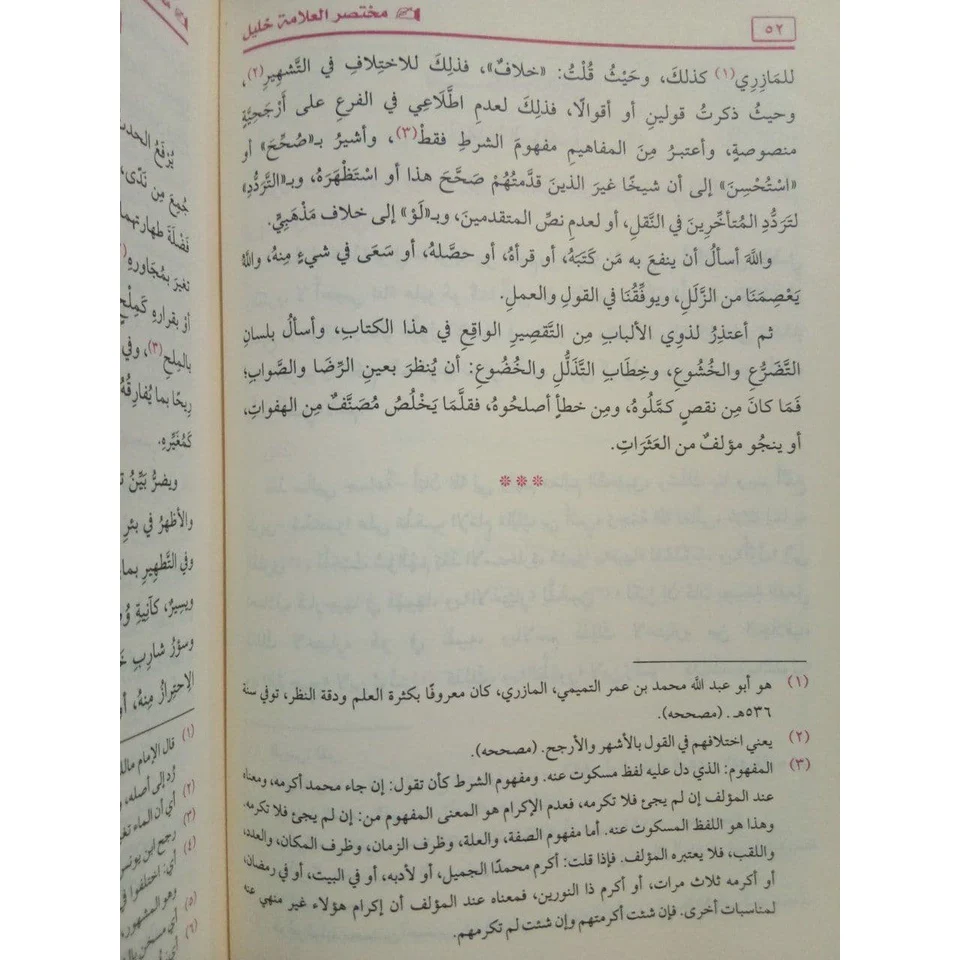 ٥٢
مختصر العلامة خليل
للمَازِرِي(١) كذلكَ، وحَيْثُ قُلْتُ: «خلافٌ»، فذلِكَ للاختِلافِ في التَّشهِيرِ(٢)،
وحيثُ ذكرتُ قولينِ أو أقوالًا، فذلِكَ لعدمِ اطِّلَاعِي في الفرعِ على أَرْجَحِيَّةٍ
منصوصةٍ، وأعتبرُ مِنَ المفاهِيمِ مفهومَ الشرطِ فقطْ(٣)، وأشيرُ بـ«صُحِّحَ» أو
«اسْتُحْسِنَ» إلى أن شيخًا غيرَ الذينَ قدَّمتُهُمْ صَحَّحَ هذا أو اسْتَظْهَرَهُ، وبـ«التَّرَدُّدِ»
لتَرَدُّدِ المُتأخِّرِينَ في النَّقلِ، أو لعدمِ نصِّ المتقدمين، وبـ«لَوْ» إلى خلاف مَذْهَبِيٍّ.
واللهَ أسألُ أن ينفعَ به مَن كَتَبَهُ، أو قرأهُ، أو حصَّلهُ، أو سَعَى في شيءٍ مِنهُ، واللهُ
يَعْصِمَنَا من الزَّلَلِ، ويوفِّقُنَا في القولِ والعملِ.
ثم أعتذِرُ لذوِي الألبابِ مِن التَّقصِيرِ الواقِعِ في هذا الكتابِ، وأسألُ بلسانِ
التَّضَرُّعِ والخُشُوعِ، وخِطَابِ التَّذَلُّلِ والخُضُوعِ: أن يُنظرَ بعينِ الرِّضَا والصَّوابِ؛
فَمَا كانَ مِن نقصٍ كمَّلُوهُ، ومِن خطأٍ أصلحُوهُ، فقلَّمَا يَخْلُصُ مُصَنَّفٌ مِن الهفواتِ،
أو ينجُو مؤلفٌ من العَثَرَاتِ.
***
(١) هو أبو عبد الله محمد بن عمر التميمي، المازري، كان معروفًا بكثرة العلم ودقة النظر، توفي سنة
٥٣٦هـ. (مصححه).
(٢) يعني اختلافهم في القول بالأشهر والأرجح. (مصححه).
(٣) المفهوم: الذي دل عليه لفظ مسكوت عنه. ومفهوم الشرط كأن تقول: إن جاء محمد أكرمه، ومعناه
عند المؤلف إن لم يجئ فلا تكرمه، فعدم الإكرام هو المعنى المفهوم من: إن لم يجئ فلا تكرمه.
وهذا هو اللفظ المسكوت عنه. أما مفهوم الصفة، والعلة، وظرف الزمان، وظرف المكان، والعدد،
واللقب، فلا يعتبره المؤلف. فإذا قلت: أكرم محمدًا الجميل، أو لأدبه، أو في البيت، أو في رمضان،
أو أكرمه ثلاث مرات، أو أكرم ذا النورين، فمعناه عند المؤلف أن إكرام هؤلاء غير منهي عنه
لمناسبات أخرى. فإن شئت أكرمتهم وإن شئت لم تكرمهم.
يُرْفَعُ الحدث
جُمِعَ مِن نَدًى،
فَضْلَةَ طهارتهما
تغيرَ بمُجَاورِهِ
أوْ بقرارهِ كَمِلْحٍ
بالمِلحِ(٣)، وفي
رِيحًا بما يُفارِقُهُ
كَمُغَيِّرِهِ.
ويضرُّ بَيِّنُ
والأظهرُ في بئرِ
وفي التَّطهيرِ بما
ويسِيرٌ، كآنِيةِ
وسؤرُ شاربِ
الِاحتِرازُ مِنهُ، أو
(١) قال الإمام مالك
رُد إلى أصله،
(٢) أي أن الماء
(٣) رجح ابن يونس
(٤) أي: اختلفوا في
وهو المشهور
(٥) أي مسخن
(٦)